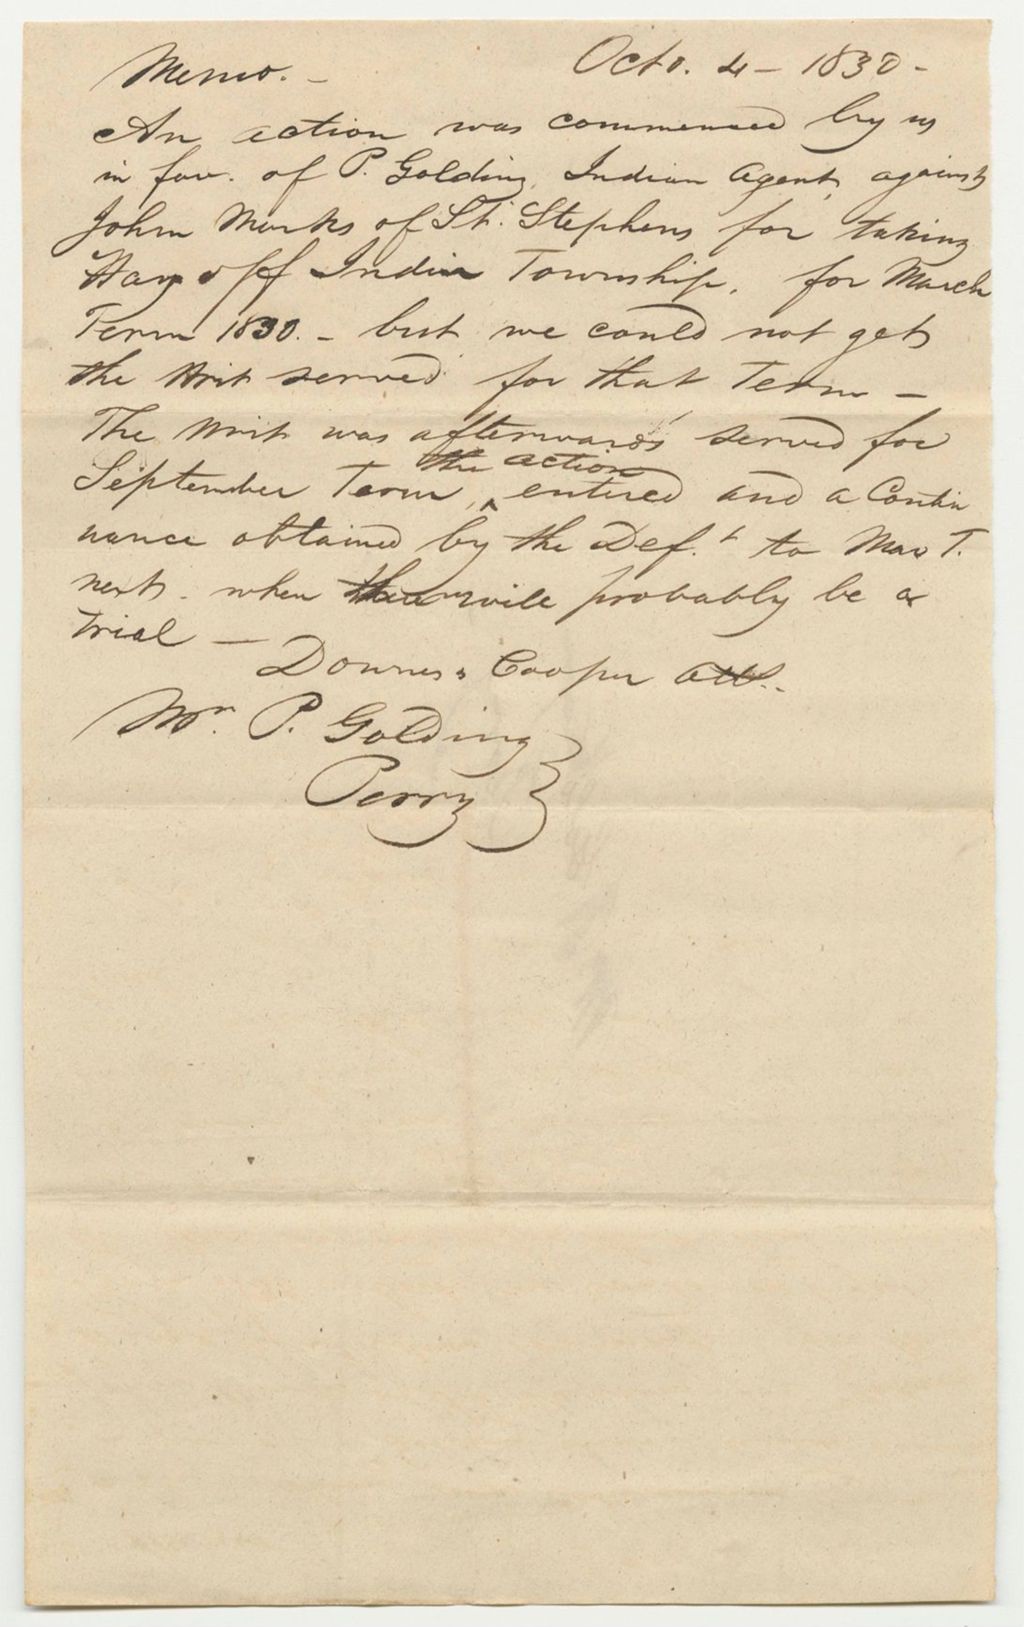 Memo. - Octo. 4 - 1830 -
An action was commenced by us
in fav. of P. Golding, Indian Agent, against
John Marks of St. Stephens for taking
Hay off Indian Township, for March
Term 1830. - but we could not get
the Writ served for that Term -
The Writ was afterwards served for
the action
September Term, ^ entered and a Contin
uance obtained by the Def.t to Mar T.
next - when there will probably be a
trial -
Downes & Cooper Att.
Mr. P. Golding
Perry